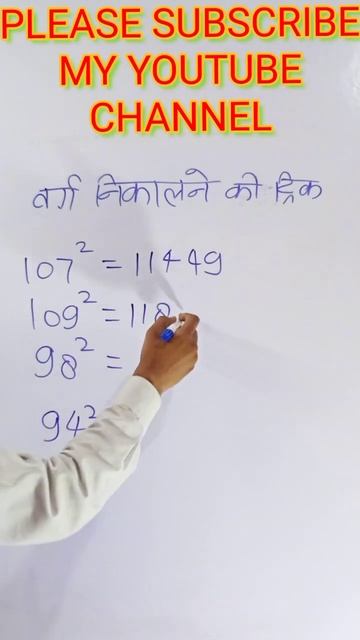 PLEASE SUBSCRIBE
MY YOUTUBE
CHANNEL
वर्ग निकालने की ट्रिक
107² = 11449
109² = 118
98² =
94²